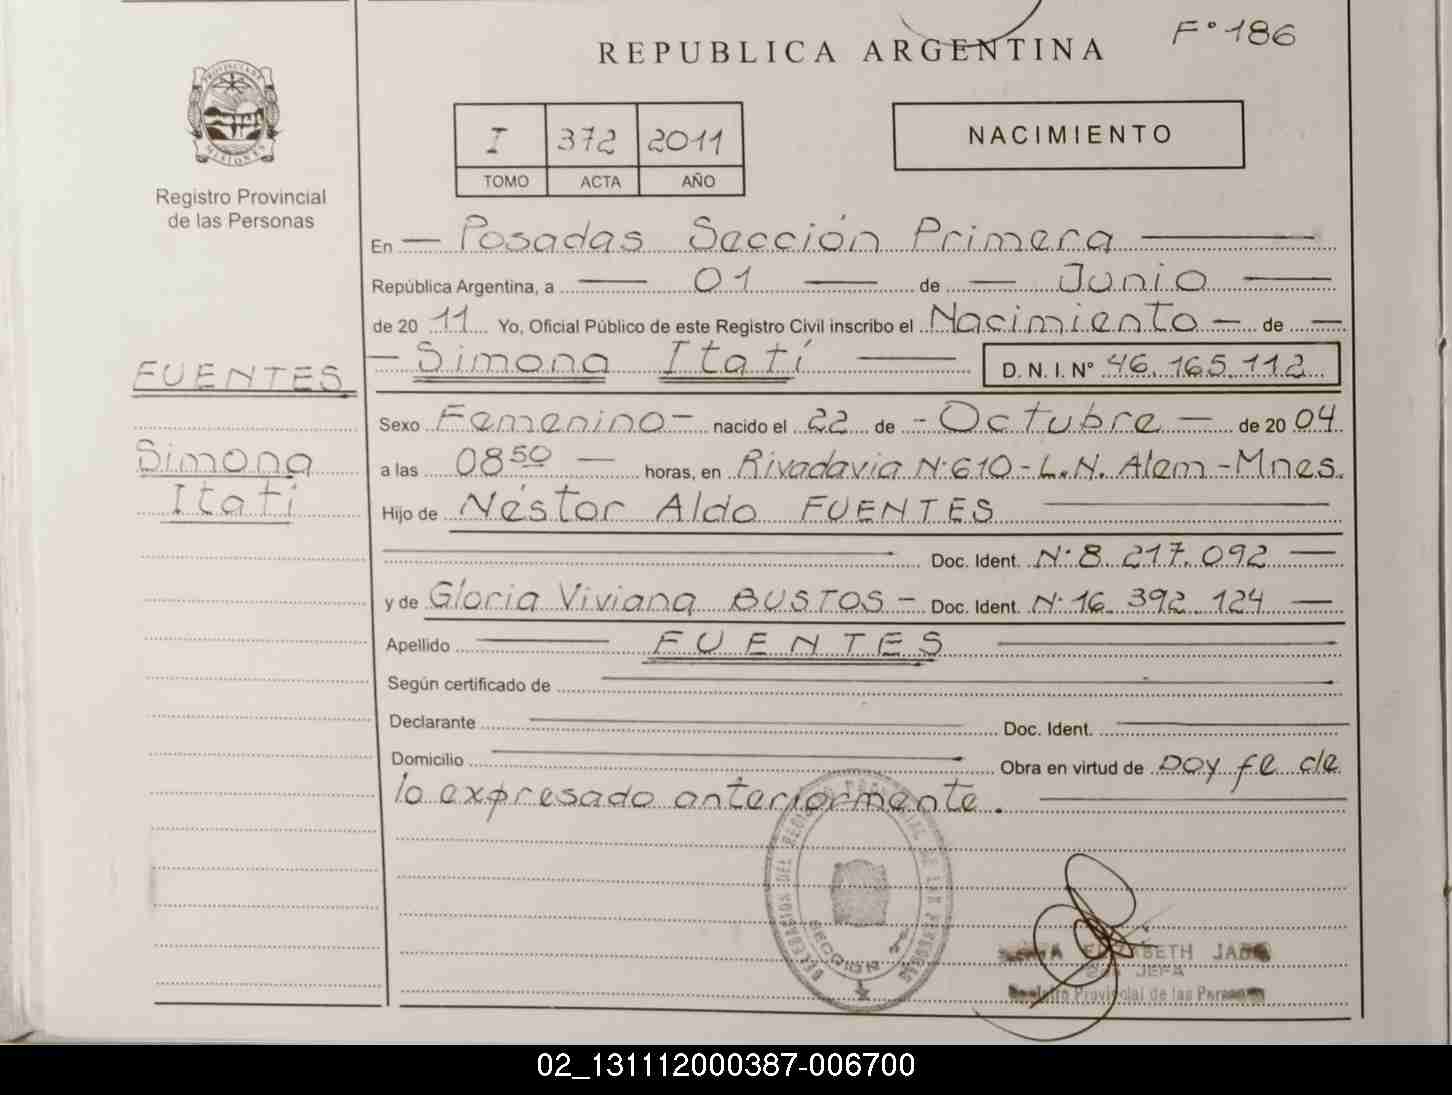 F° 186
REPUBLICA ARGENTINA
PROVINCIA DE
MISIONES
Registro Provincial
de las Personas
I 372 2011
TOMO ACTA AÑO
NACIMIENTO
En — Posadas Sección Primera —
República Argentina, a — 01 — de — Junio —
de 20 11 Yo, Oficial Público de este Registro Civil inscribo el Nacimiento — de —
— Simona Itatí — D. N. I. N° 46.165.112
FUENTES
Simona
Itatí
Sexo Femenino — nacido el 22 de - Octubre — de 20 04
a las 08 50 — horas, en Rivadavia N° 610 - L.N. Alem - Mnes.
Hijo de Néstor Aldo FUENTES —
— Doc. Ident. N° 8.217.092 —
y de Gloria Viviana BUSTOS — Doc. Ident. N° 16.392.124 —
Apellido — FUENTES —
Según certificado de —
Declarante — Doc. Ident. —
Domicilio — Obra en virtud de Doy fe de
lo expresado anteriormente. —
DELEGACION DEL REGISTRO PROVINCIAL DE LAS PERSONAS
SECCION
ELIZABETH
JEFA
Registro Provincial de las Personas
02_131112000387-006700